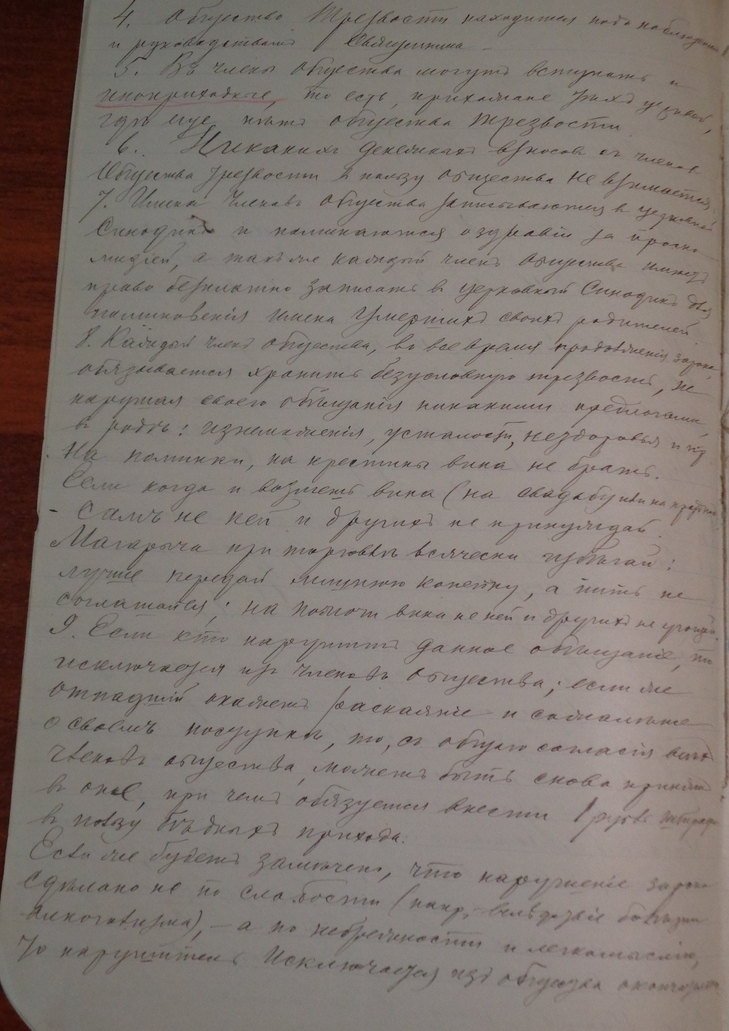 4. Общество Трезвости находится подъ наблюденiем
и руководствомъ Священника
5. Въ члены общества могутъ вступать и
иноприходные, то есть, прихожане тѣхъ церквей,
гдѣ еще нѣтъ общества трезвости
6. Никакихъ денежныхъ взносовъ съ членовъ
Общества трезвости въ пользу общества не взимается.
7. Имена членовъ общества записываются в церковный
Синодикъ и поминаются о здравiи за проско-
мидiей, а также каждый членъ общества имеетъ
право безплатно записать в церковный Синодикъ для
поминовенiя имена умершихъ своихъ родителей.
8. Каждый членъ общества, во все время продолженiя зарока,
обязывается хранить безусловную трезвость, не
нарушая своего обѣщанiя никакими предлогами,
в родѣ: изнеможенiя, усталости, нездоровья и пр
На поминки, на крестины вина не брать.
Если когда и возметъ вина (на свадьбу или на
- самъ не пей и другихъ не принуждай.
Магарыча при торговлѣ всячески избѣгай:
лучше передай лишнюю копейку, а пить не
соглашайся; на помочи вина не пей и другихъ не угощай.
9. Если кто нарушитъ данное обѣщанiе, то
исключается изъ членовъ общества; если же
отпадшiй окажетъ раскаянiе и сожаленiе
о своемъ поступкѣ, то, съ общаго согласiя всѣхъ
членовъ общества, можетъ быть снова принятъ
в оное, при чемъ обязуется внести 1 рубль штрафа
в пользу бѣдныхъ прихода.
Если же будетъ замѣчено, что нарушенiе зарока
сдѣлано не по слабости (напр, - вслѣдствiе болѣзни
алкоголизма), - а по небрежности и легкомыслiю,
то нарушитель исключается изъ общества окончательно